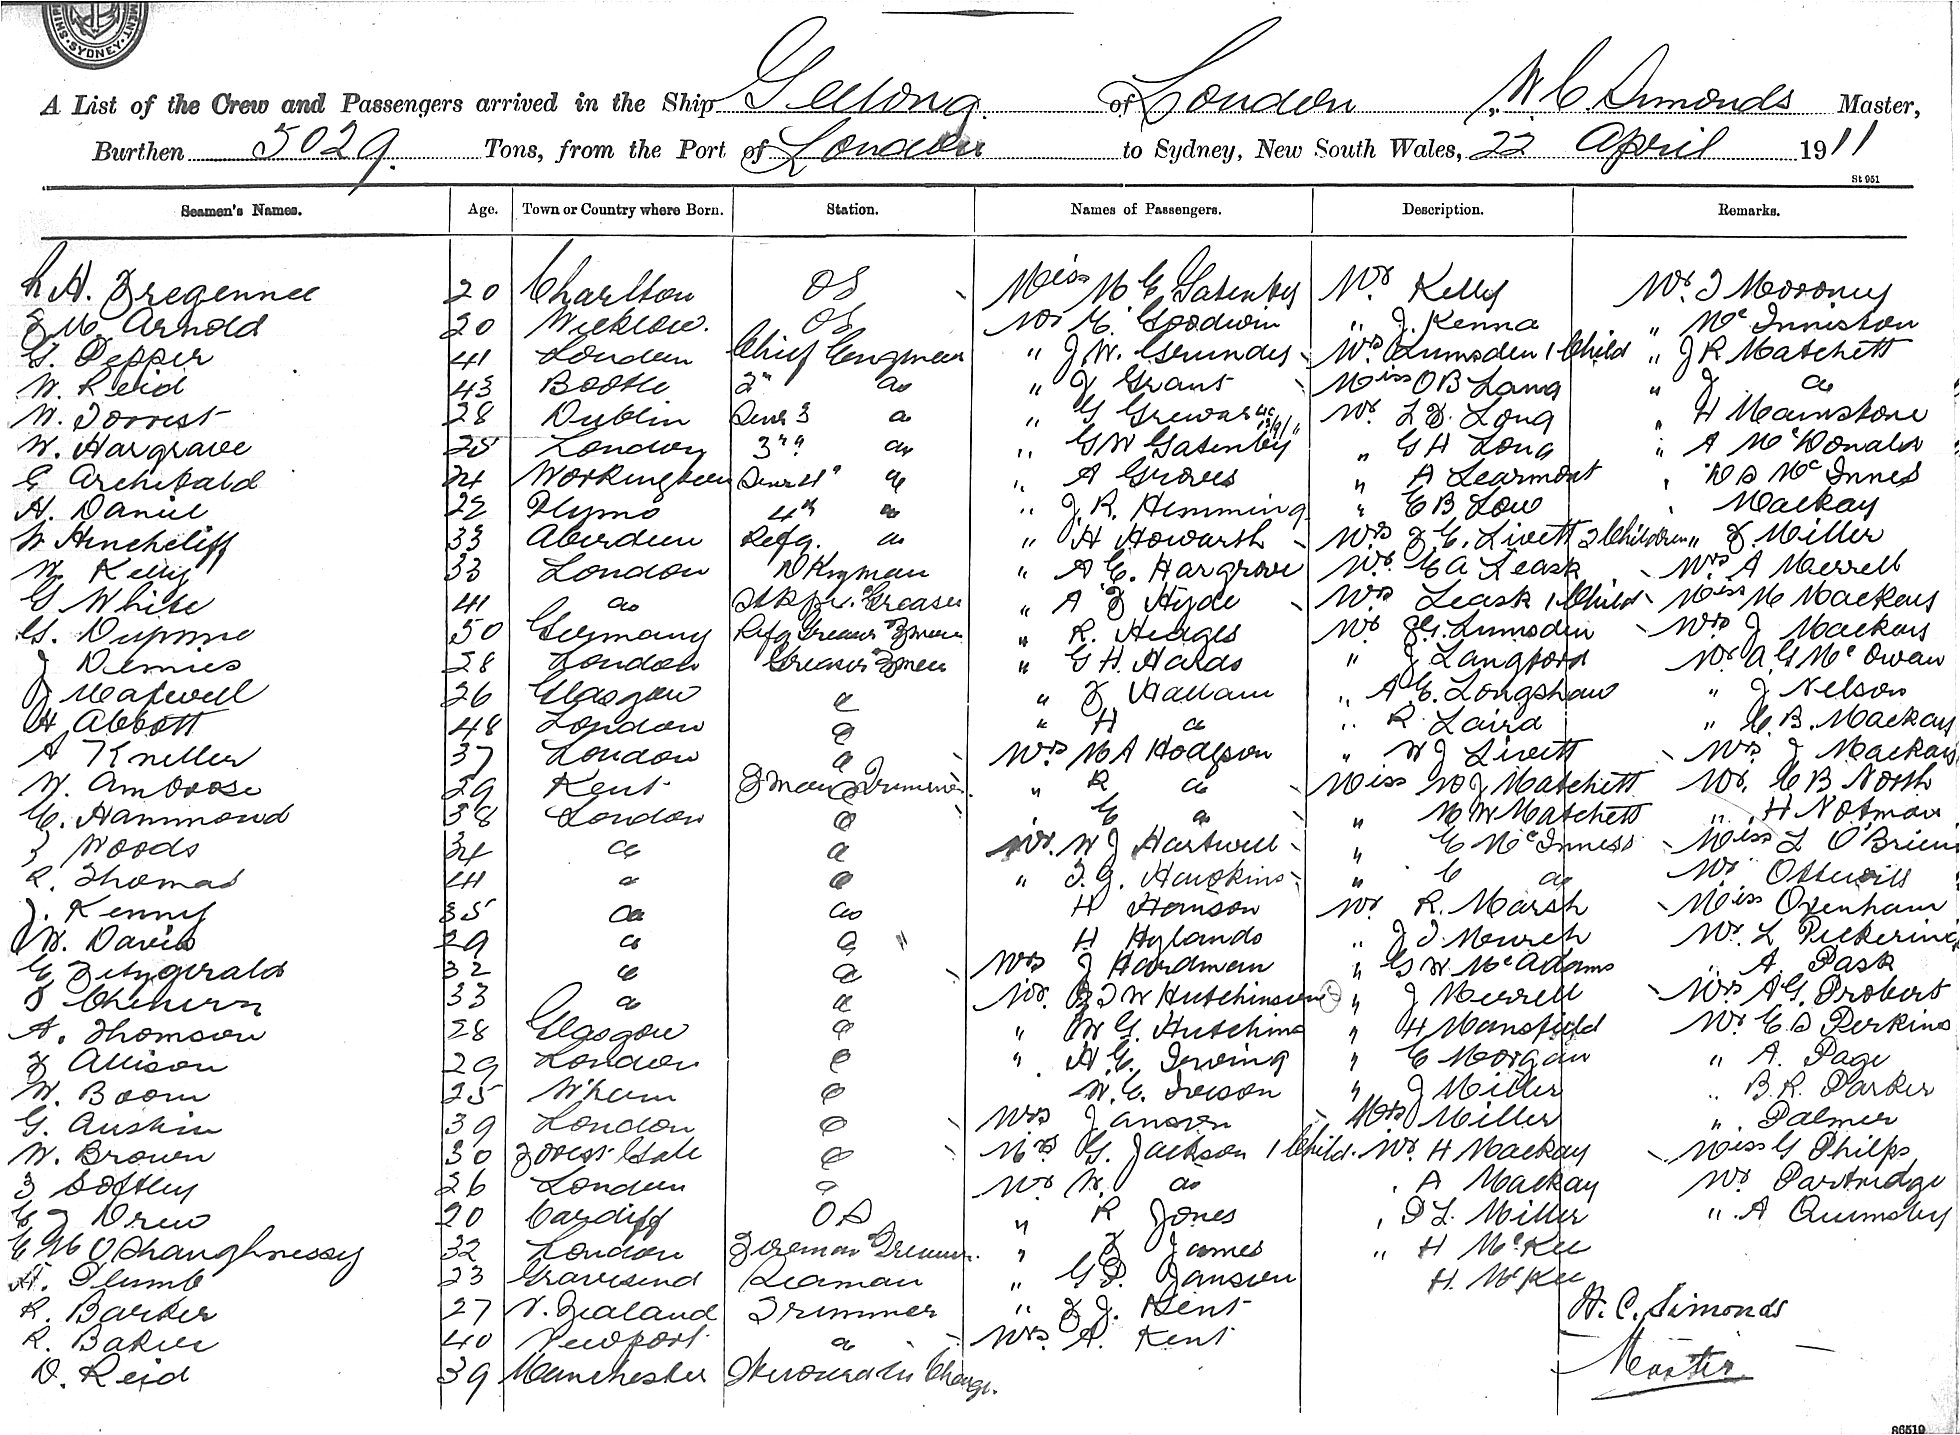 SYDNEY
A List of the Crew and Passengers arrived in the Ship Geelong of London, W. C. Simonds Master,
Burthen 5029. Tons, from the Port of London to Sydney, New South Wales, 22 April 1911
St 951
Seamen's Names. Age. Town or Country where Born. Station. Names of Passengers. Description. Remarks.
H. Tregennee 20 Charlton OS Miss M E Gatenby Mr Kelly Mr T Mooney
F M Arnold 20 Wicklow. OS Mr E. Goodwin " J. Kenna " McInniston
G. Pepper 41 London Chief Engineer " J W. Grundy Mrs Lumsden 1 Child " J R Matchett
W. Reid 43 Bootle 2nd do " J Grant Miss O B Lang " J do
W. Forrest 28 Dublin Senr 3 do " G Grewar Mr L F. Long " H Mainstone
W. Hargrave 25 London 3rd do " G W Gatenby " G H Long " A McDonald
G Archibald 24 Workington Senr 4th do " A Groves " A Learmont " D S McInnes
H. Daniel 22 Plymo 4th do " J. R. Hemming " E B Low " Mackay
W Hincheliff 33 Aberdeen Refg. do " H Howarth Mrs J E. Livett 2 Children " F Miller
W. Kelly 33 London Dkyman " A E. Hargrove Mr. E A Leask Mrs A Merrell
G White 41 do Stkpr. Greaser " A J Hyde Mrs Leask 1 Child Miss M Mackay
G. Dupine 50 Germany Refg Greaser Fmen " R. Hedges Mr J G. Lumsden Mrs J Mackay
J Dennis 28 London Greaser Fmen " G H. Hards " J Langford Mr A G McOwan
J Maxwell 26 Glasgow do " J Hallam " A E. Longshaw " J Nelson
H Abbott 48 London do " H do " R. Laird " E. B. Mackay
A Kneller 37 London do Mrs M A Hodgson " W J Livett Mrs J Mackay
W. Ambrose 29 Kent Fman Trimmer " R do Miss W J Matchett Mr. E B North
C. Hammond 38 London do " E do " M W Matchett " H Notman
J Woods 34 do do Mr. W J Hartwell " E McInness Miss L O'Brien
R. Thomas 41 do do " T. G. Hawkins " E do Mr Ottwill
J. Kenny 35 do do H Hanson Mr R. Marsh Miss Oxenham
W. Davis 29 do do H Hylands " J T March Mr. L Pickering
E Fitzgerald 32 do do Mrs J Hardman " G W McAdams " A. Pask
33 do do Mr. B T W Hutchinson " J Merrell Mrs A G. Probert
A. Thomson 28 Glasgow do " W G. Hutchins " H Mansfield Mr E S Perkins
J Allison 29 London do " H E. Irving " E Morgan " A. Page
W. Boom 25 W'ham do W. E. Iveson " J Miller " B. R. Parker
G. Austin 39 London do Mrs Janson Mrs Miller " Palmer
W. Brown 30 Forest Gate do Mrs G. Jackson 1 Child. Mr H Mackay Miss G Philps
J Softley 26 London do Mr W. do " A Mackay Mr Partridge
C J Drew 20 Cardiff OS " R Jones " P L. Miller " A Quimsby
E M O'Shaughnessy 32 London Fireman Trimmer " J James " H McKee
H. Plumb 23 Gravesend Seaman " G P. Janson H. McKee
R. Barber 27 N. Zealand Trimmer " F J. Kent W. C. Simonds
R. Baker 40 Newport do Mrs. A. Kent Master
D. Reid 39 Manchester Steward in Charge.
86519